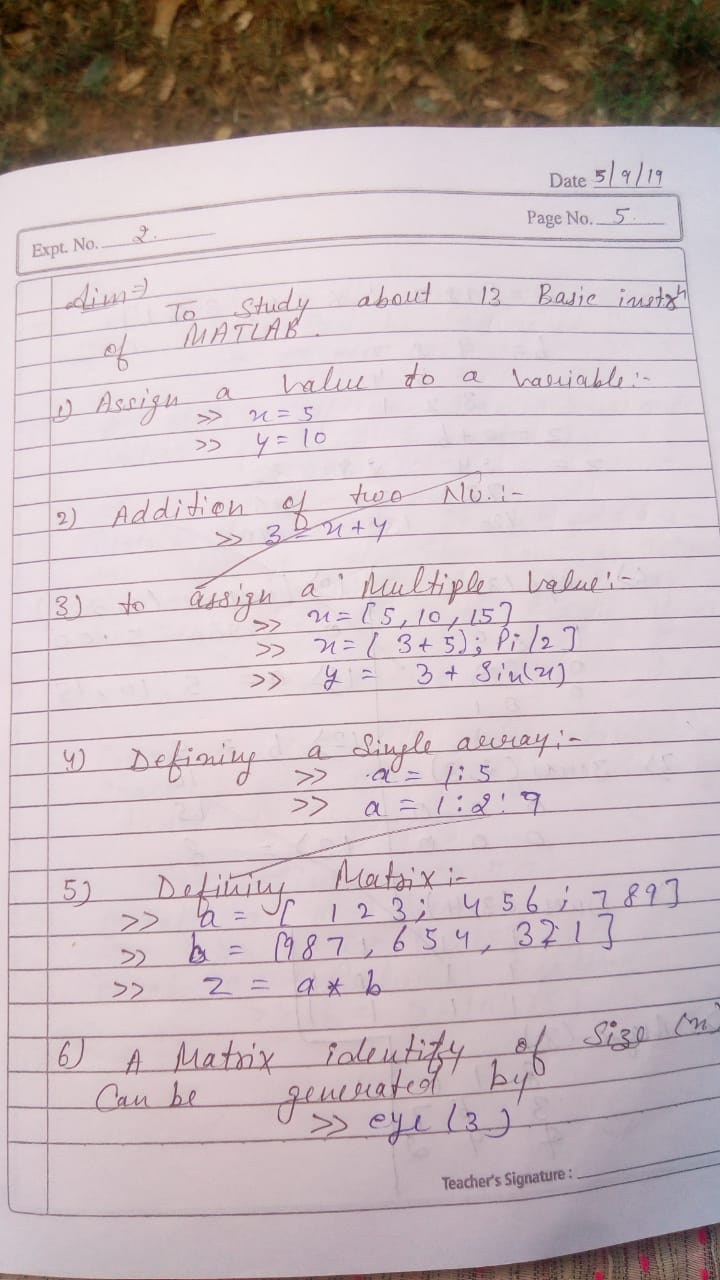 Date 5/9/19
Expt. No. 2.
Page No. 5
Aim⇒
To Study about 13 Basic instrⁿ
of MATLAB.
1) Assign a value to a variable:-
>> x = 5
>> y = 10
2) Addition of two No.:-
>> z = x + y
3) to assign a Multiple value:-
>> x = [5, 10, 15]
>> x = [ 3+5); Pi/2]
>> y = 3 + Sin(x)
4) Defining a Single array:-
>> a = 1:5
>> a = 1:2:9
5) Defining Matrix:-
>> a = [ 1 2 3; 4 5 6; 7 8 9]
>> b = [9 8 7, 6 5 4, 3 2 1]
>> z = a * b
6) A Matrix identity of Size (n)
Can be generated by
>> eye (3)
Teacher's Signature :